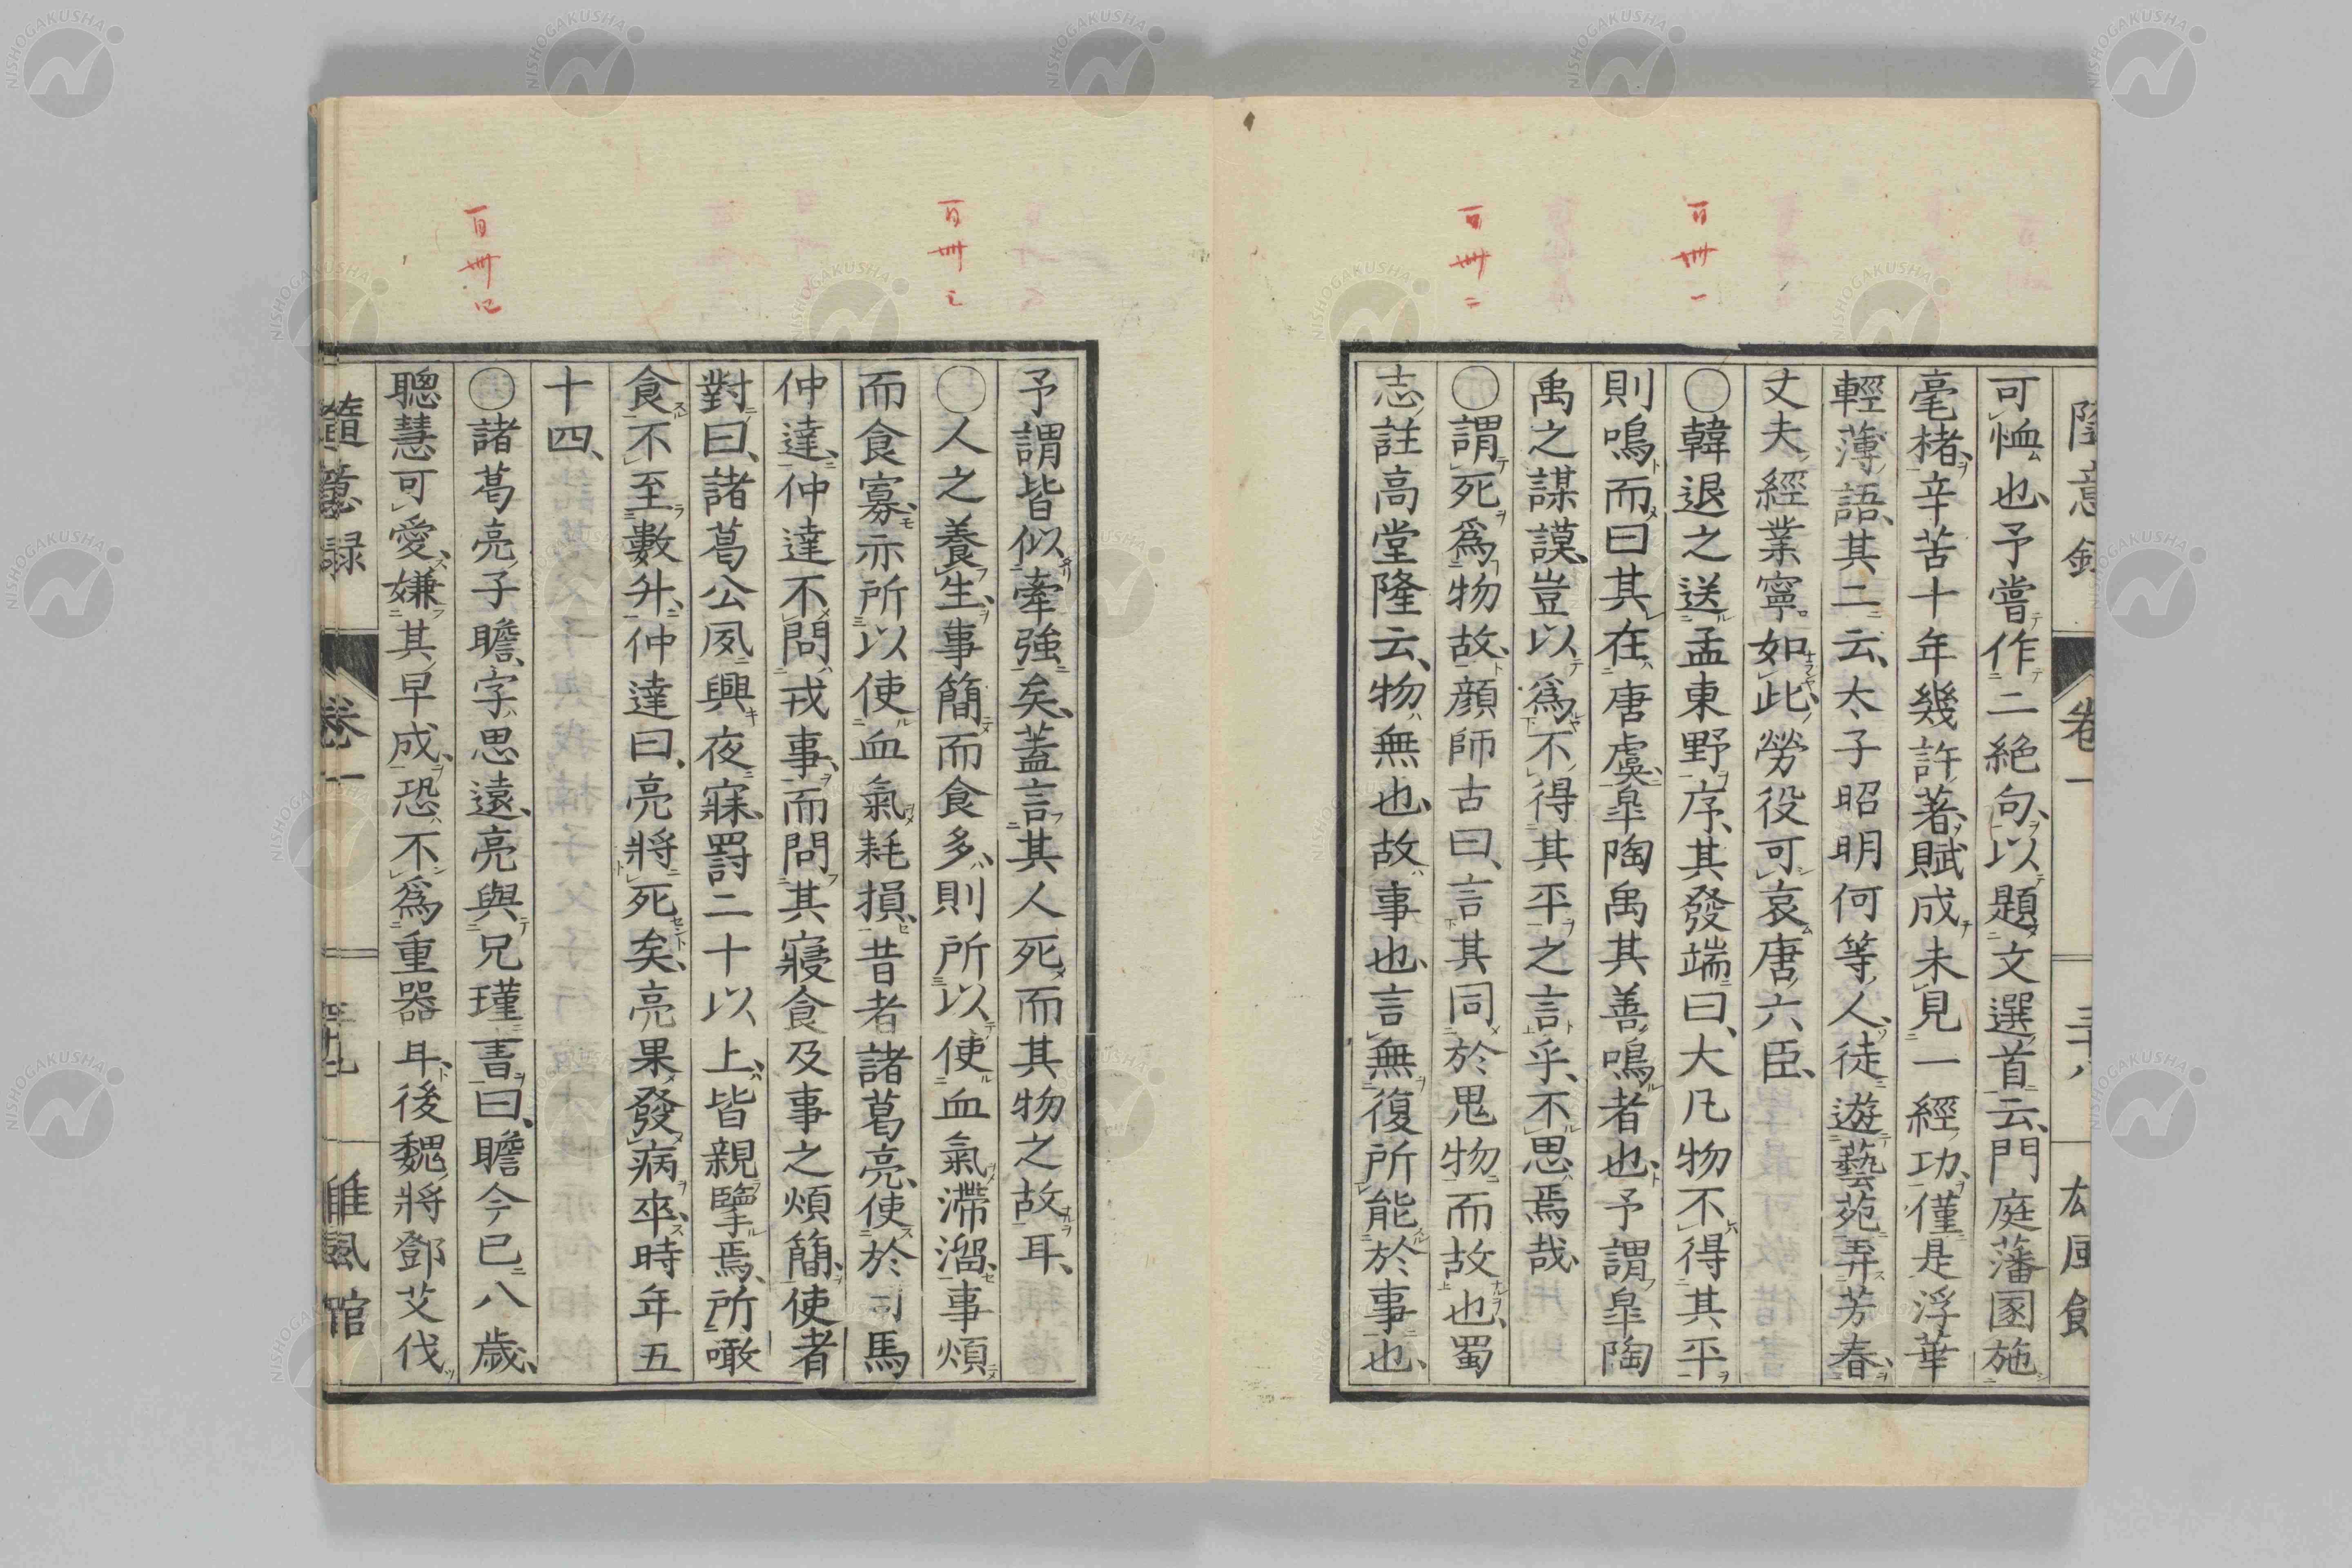 百卅一
百卅二
隨意録
卷一
可恤也、予嘗作二絶句、以題文選首云、門庭藩圂施
毫楮、辛苦十年幾許著、賦成未見一經功、僅是浮華
輕薄語、其二云、太子昭明何等人、徒遊藝苑弄芳春、
丈夫經業寧如此、勞役可哀唐六臣、
〇韓退之送孟東野序、其發端曰、大凡物不得其平
則鳴、而曰其在唐虞、皐陶禹其善鳴者也、予謂皐陶
禹之謀謨、豈以爲不得其平之言乎、不思焉哉、
〇謂死爲物故、顔師古曰、言其同於鬼物而故也、蜀
志註高堂隆云、物無也、故事也、言無復所能於事也、
百卅三
百卅四
予謂皆似牽強矣、蓋言其人死而其物之故耳、
〇人之養生、事簡而食多、則所以使血氣滯溜、事煩
而食寡、亦所以使血氣耗損、昔者諸葛亮、使於司馬
仲達、仲達不問戎事、而問其寢食及事之煩簡、使者
對曰、諸葛公夙興夜寐、罸二十以上、皆親擥焉、所噉
食不至數升、仲達曰、亮將死矣、亮果發病卒、時年五
十四、
〇諸葛亮子瞻、字思遠、亮與兄瑾書曰、瞻今已八歳、
聰慧可愛、嫌其早成、恐不爲重器耳、後魏將鄧艾伐
隨意録
卷一
雄風館